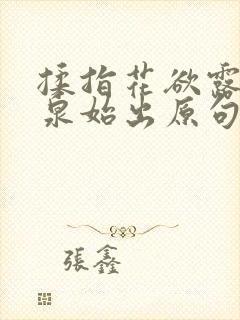 搔指花欲露
泉始出原句
張鑫